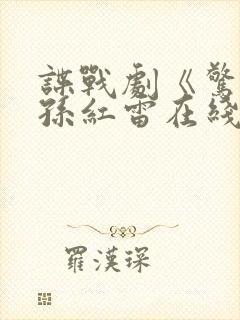 諜戰劇《驚
孫紅雷在綫
羅漢琛